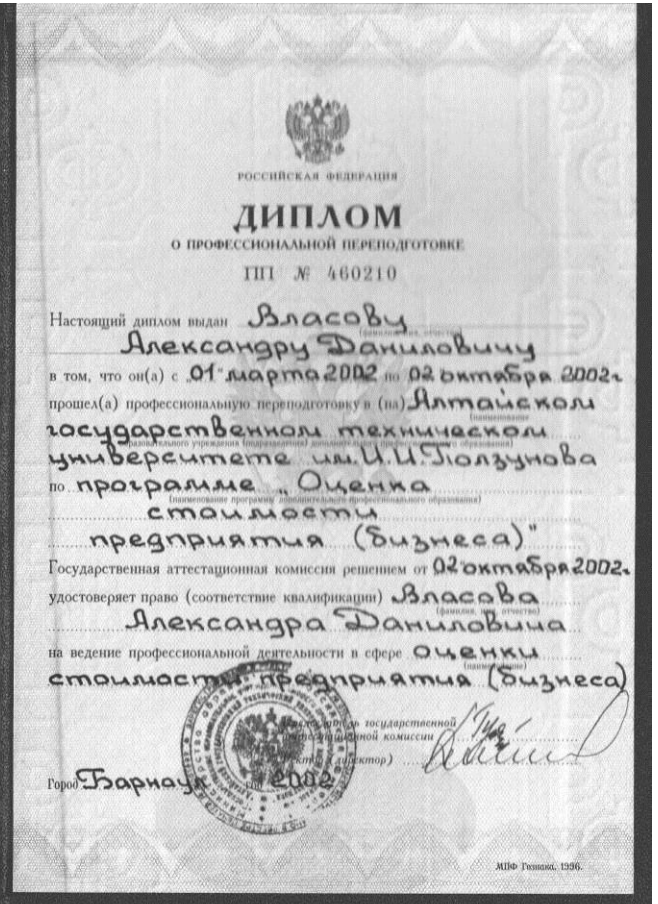 РОССИЙСКАЯ ФЕДЕРАЦИЯ
ДИПЛОМ
О ПРОФЕССИОНАЛЬНОЙ ПЕРЕПОДГОТОВКЕ
ПП № 460210
Настоящий диплом выдан Власову
(фамилия, имя, отчество)
Александру Даниловичу
в том, что он(а) с „01“ марта 2002 по 02 октября 2002г.
прошел(а) профессиональную переподготовку в (на) Алтайском
(наименование
государственном техническом
образовательного учреждения (подразделения) дополнительного профессионального образования)
университете им. И.И. Ползунова
по программе „Оценка
(наименование программы дополнительного профессионального образования)
стоимости
предприятия (бизнеса)"
Государственная аттестационная комиссия решением от 02 октября 2002г.
удостоверяет право (соответствие квалификации) Власова
(фамилия, имя, отчество)
Александра Даниловича
на ведение профессиональной деятельности в сфере оценки
(наименование)
стоимости предприятия (бизнеса)
государственной
комиссии
(директор)
Город Барнаул 2002
МПФ Гознака. 1996.